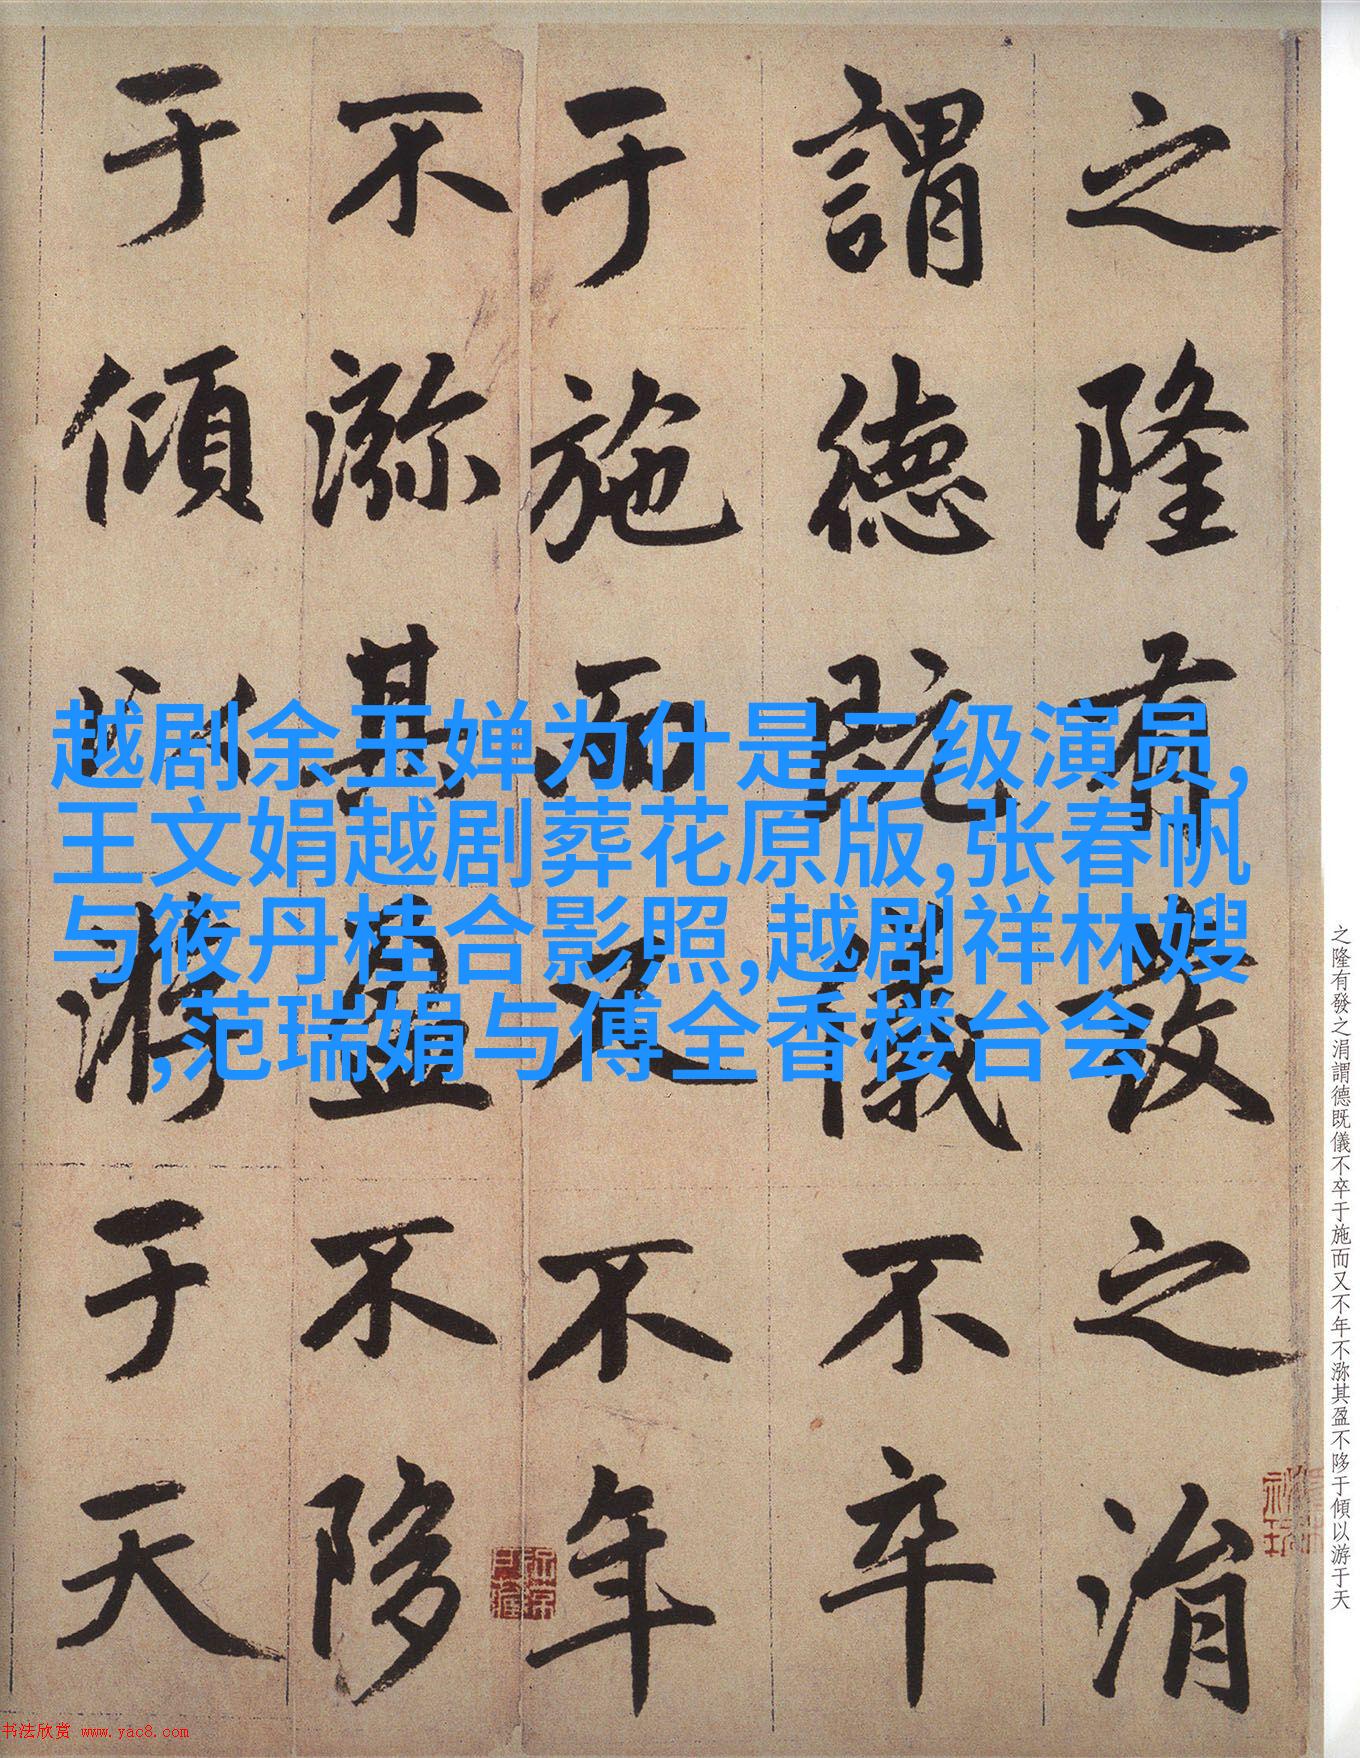 越剧余玉婵为什是二级演员,
王文娟越剧葬花原版,张春帆
与筱丹桂合影照,越剧祥林嫂
,范瑞娟与傅全香楼台会
之隆有發之涓
謂德既儀不卒
于施而又不年
不㳽其盈不陊
于傾以游于天
之隆有發之涓謂德既儀不卒于施而又不年不㳽其盈不陊于傾以游于天
书法欣赏 www.yac8.com